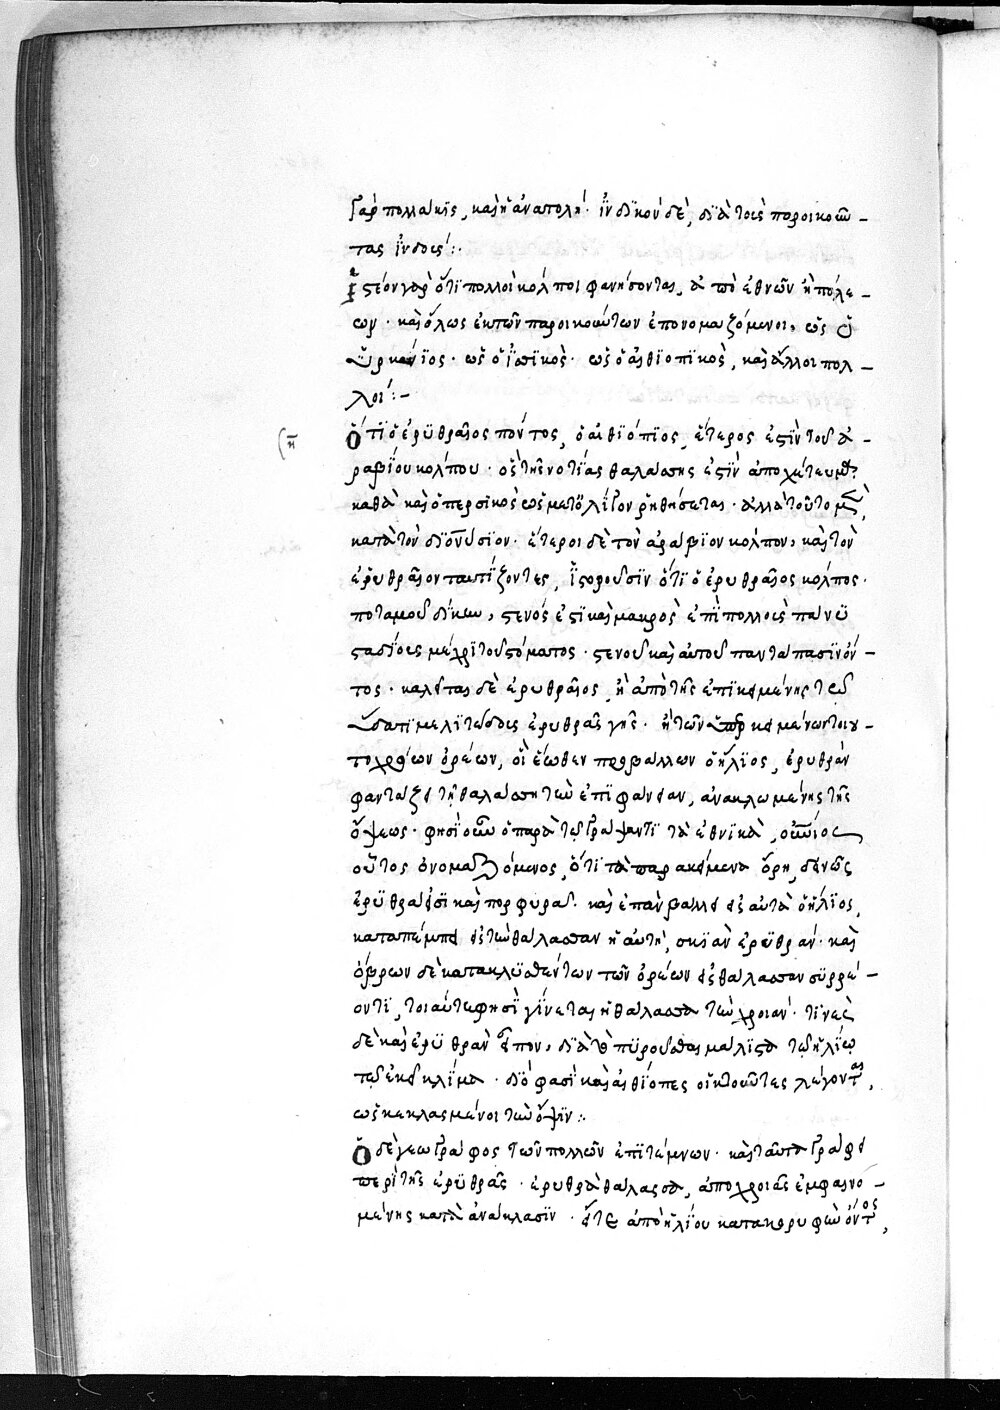 γὰρ πολλάκις, καὶ ἡ ἀνατολή· ἰνδικοῦ δὲ, διὰ τοὺς παροικοῦν-
τας ἰνδούς:·
ἰστέον γὰρ ὅτι πολλοὶ κόλποι φανήσονται, ἀπὸ ἐθνῶν ἢ πόλε-
ων· καὶ ὅλως ἐκ τῶν παροικούντων ἐπονομαζόμενοι, ὡς ὁ
ὑρκάνιος· ὡς ὁ ἰσσικὸς· ὡς ὁ αἰθιοπικὸς, καὶ ἄλλοι πολ-
λοί:-
ὅτι ὁ ἐρυθραῖος πόντος, ὁ αἰθιόπιος, ἕτερός ἐστιν τοῦ ἀ-
ραβίου κόλπου· ὃς τῆς νοτίας θαλάσσης ἐστὶν
καθὰ καὶ ὁ περσικὸς ὡς μετ' ὀλίγον ῥηθήσεται· ἀλλὰ τοῦτο μὲν,
κατὰ τὸν διονύσιον· ἕτεροι δὲ τὸν ἀράβιον κόλπον, καὶ τὸν
ἐρυθραῖον ταυτίζοντες, ἱστοροῦσιν ὅτι ὁ ἐρυθραῖος κόλπος·
ποταμοῦ δίκην, στενός ἐστι καὶ μακρὸς ἐπὶ πολλοὺς πάνυ
σταδίους μέχρι τοῦ στόματος· στενοῦ καὶ αὐτοῦ παντάπασιν ὄν-
τος· καλεῖται δὲ ἐρυθραῖος, ἢ ἀπὸ τῆς ἐπικειμένης τῷ
ὕδατι μελιτώδους ἐρυθρᾶς γῆς· ἢ τῶν ὑπερκειμένων τοιού-
των ὀρέων, οἷς ἕωθεν προβάλλων ὁ ἥλιος, ἐρυθρὰν
φαντάζει τῇ θαλάσσῃ τὴν ἐπιφάνειαν, ἀνακλωμένης τῆς
ὄψεως· φησὶ γοῦν ὁ παρὰ τῷ γράψαντι τὰ ἐθνικὰ,
οὕτως ὀνομαζόμενος, ὅτι τὰ παρακείμενα ὄρη, δεινῶς
ἐρυθρά εἰσι καὶ πορφυρᾶ· καὶ ἐπὰν βάλλῃ εἰς αὐτὰ ὁ ἥλιος,
καταπέμπει εἰς τὴν θάλασσαν ἡ αὐτὴ, σκιὰν ἐρυθράν· καὶ
ὄμβρων δὲ κατακλυσθέντων τῶν ὀρέων εἰς θάλασσαν συρρέ-
οντι, τοιαύτη φησὶ γίνεται ἡ θάλασσα τὴν χροιάν· τινὲς
δὲ καὶ ἐρυθρὰν εἶπον, διὰ τὸ πυροῦσθαι μάλιστα τῷ ἡλίῳ
τῷ ἐκεῖ κλίμα· διό φασι καὶ αἰθίοπες οἰκοῦντες λέγονται,
ὡς κεκλασμένοι τὴν ὄψιν:·
ὁ δὲ γεωγράφος τῶν πολλῶν ἐπιτέμνων· καὶ ταῦτα γράφει
περὶ τῆς ἐρυθρᾶς· ἐρυθρὰ θάλασσα, ἀπὸ χροιᾶς ἐμφαινο-
μένης κατὰ ἀνάκλασιν· εἴτε ἀπὸ ἡλίου κατακορυφὴν ὄντος,